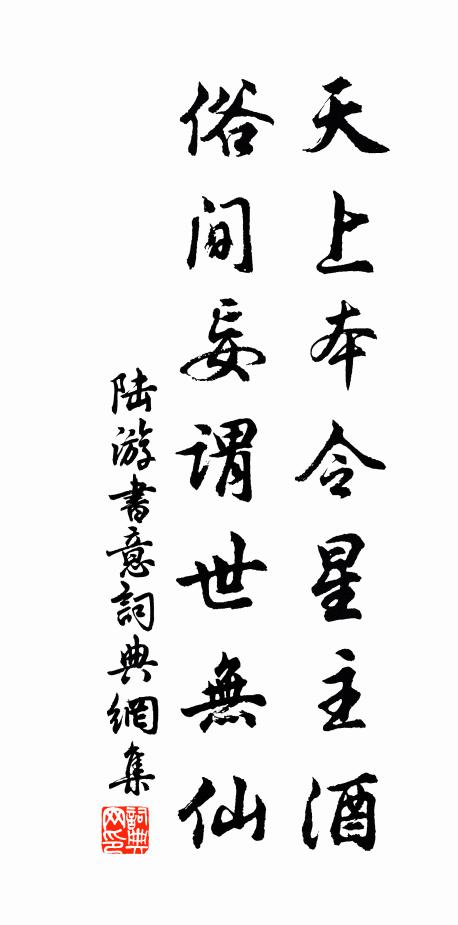 天上本令星主酒
俗间妄謂世無仙
陆游書意詞典網集
詞典网印